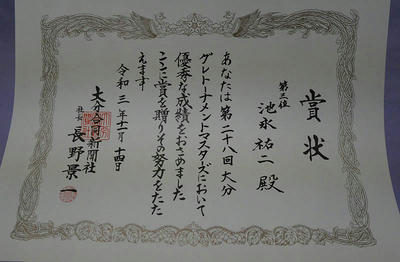 賞状
第三位
池永祐二殿
あなたは第二十八回大分
グレトーナメントマスターズにおいて
優秀な成績をおさめました
ここに賞を贈りその努力をたた
えます
令和三年十一月十四日
大分合同新聞社
社長 長野景一